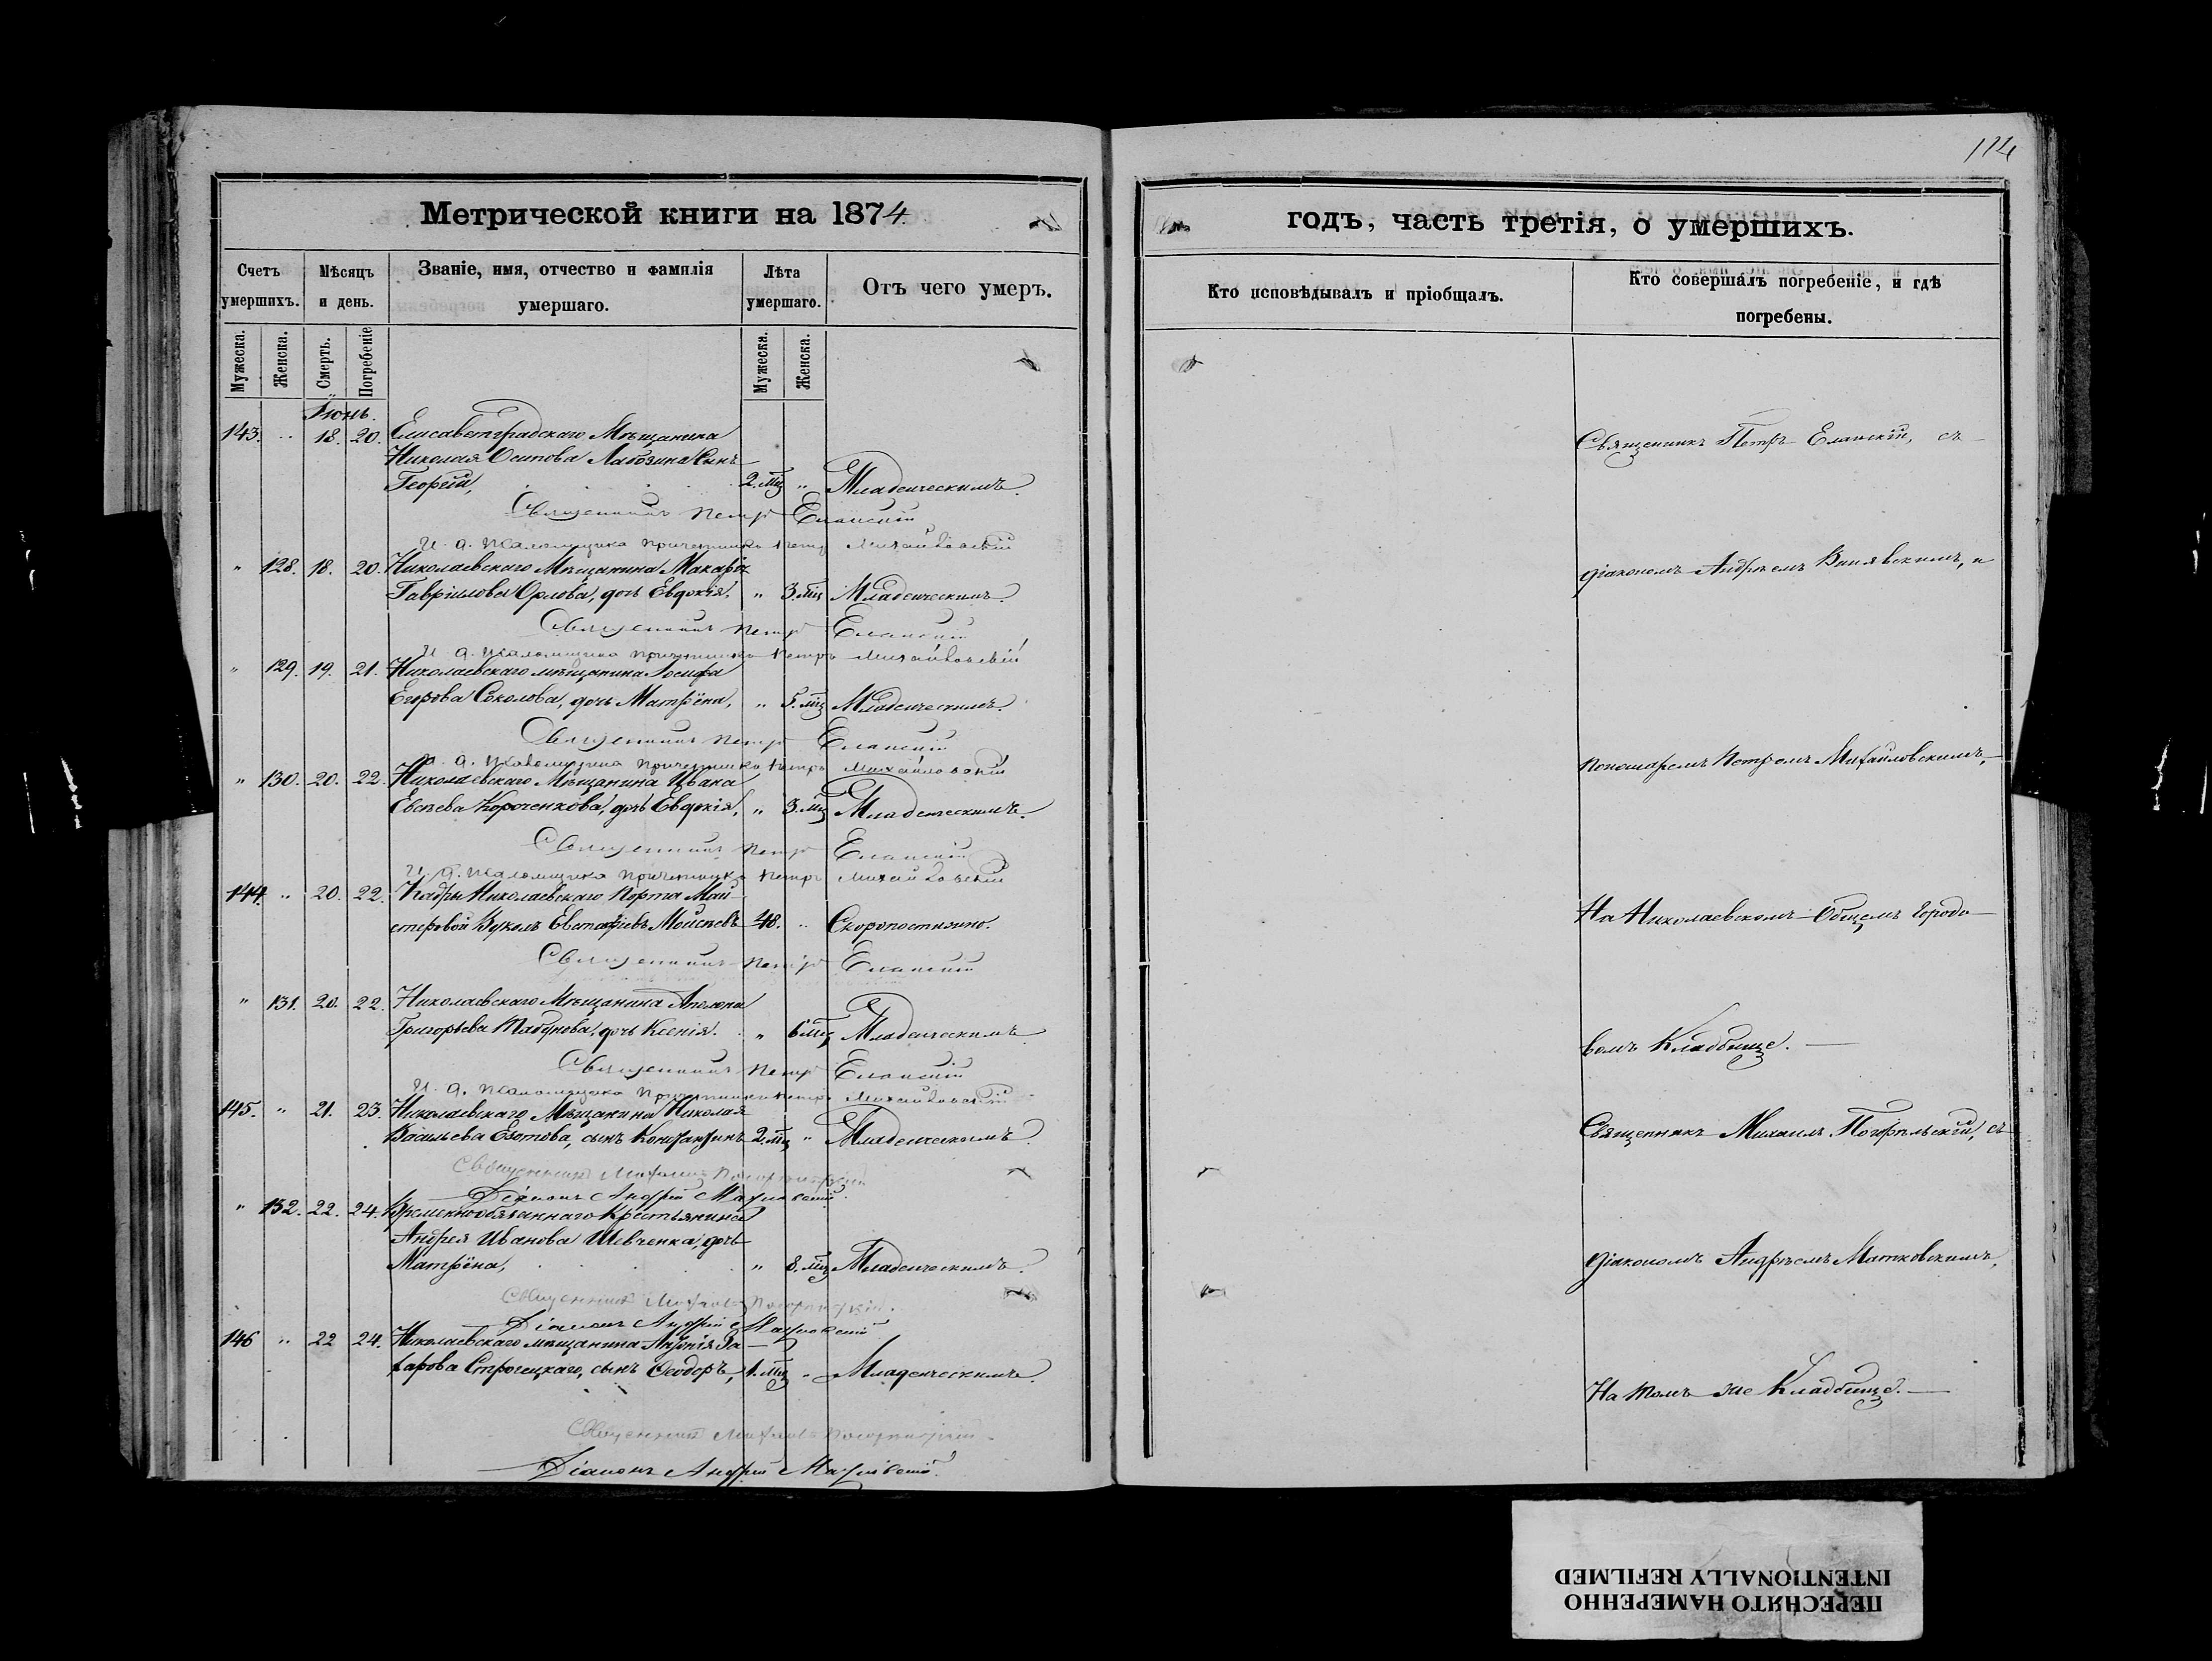 114
Метрической книги на 1874.
годъ, часть третія, о умершихъ.
Счетъ умершихъ.
Мѣсяцъ и день.
Званіе, имя, отчество и фамилія умершаго.
Лѣта умершаго.
Отъ чего умеръ.
Кто исповѣдывалъ и пріобщалъ.
Кто совершалъ погребеніе, и гдѣ погребены.
Мужеска.
Женска.
Смерть.
Погребеніе
Мужеска.
Женска.
Іюнь.
143. " 18. 20. Елисаветградскаго Мѣщанина
Николая Осипова сынъ
Георгій, 2. мц " Младенческимъ.
Священникъ Петръ Еланскій
И. д. Псаломщика причетникъ Петръ Михайловскій
" 128. 18. 20. Николаевскаго Мѣщанина Макарія
Гавріилова Орлова, дочь Евдокія, " 3. мц Младенческимъ.
Священникъ Петръ Еланскій
И. д. Псаломщика причетникъ Петръ Михайловскій
" 129. 19. 21. Николаевскаго мѣщанина Іосифа
Егорова Соколова, дочь Матрёна, " 5. мц Младенческимъ.
Священникъ Петръ Еланскій
И. д. Псаломщика причетникъ Петръ Михайловскій
" 130. 20. 22. Николаевскаго Мѣщанина Ивана
Евсѣева Короченкова, дочь Евдокія, " 3. мц Младенческимъ.
Священникъ Петръ Еланскій
И. д. Псаломщика причетникъ Петръ Михайловскій
144. " 20. 22. Кадры Николаевскаго Порта Май-
стеровой Вуколъ Евстафіевъ Моисеевъ 48. " Скоропостижно.
Священникъ Петръ Еланскій
" 131. 20. 22. Николаевскаго Мѣщанина
Григорьева Табунова, дочь Ксенія. " 6 мц Младенческимъ.
Священникъ Петръ Еланскій
И. д. Псаломщика Причетникъ Петръ Михайловскій
145. " 21. 23. Николаевскаго Мѣщанина Николая
Васильева сынъ Константинъ 2. мц " Младенческимъ.
Священникъ Михаилъ Погорѣльскій
Діаконъ Андрей Матковскій.
" 132. 22. 24. Временнообязаннаго Крестьянина
Андрея Иванова Шевченка, дочь
Матрёна, " 8. мц Младенческимъ.
Священникъ Михаилъ Погорѣльскій.
Діаконъ Андрей Матковскій
146 " 22 24. Николаевскаго мѣщанина За-
харова сынъ Ѳеодоръ, 1. мц " Младенческимъ.
Священникъ Михаилъ Погорѣльскій.
Діаконъ Андрей Матковскій.
Священникъ Петръ Еланскій, съ
діакономъ Андреемъ и
пономаремъ Петромъ Михайловскимъ,
На Николаевскомъ Общемъ Городо-
вомъ Кладбище.
Священникъ Михаилъ Погорѣльскій, съ
діакономъ Андреемъ Матковскимъ,
На томъ же Кладбище.
ПЕРЕСНЯТО НАМЕРЕННО
INTENTIONALLY REFILMED